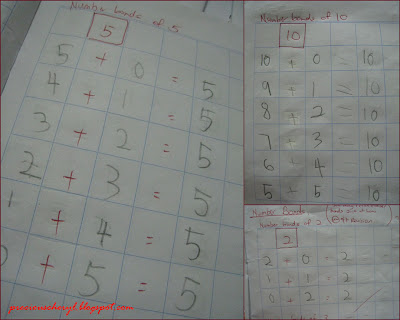 Number bonds of 5
5
5 + 0 = 5
4 + 1 = 5
3 + 2 = 5
2 + 3 = 5
1 + 4 = 5
0 + 5 = 5
Number bonds of 10
10
10 + 0 = 10
9 + 1 = 10
8 + 2 = 10
7 + 3 = 10
6 + 4 = 10
5 + 5 = 10
Number Bonds
Number bonds of 2
2
2 + 0 = 2
1 + 1 = 2
0 + 2 = 2
preciouscheryl.blogspot.com